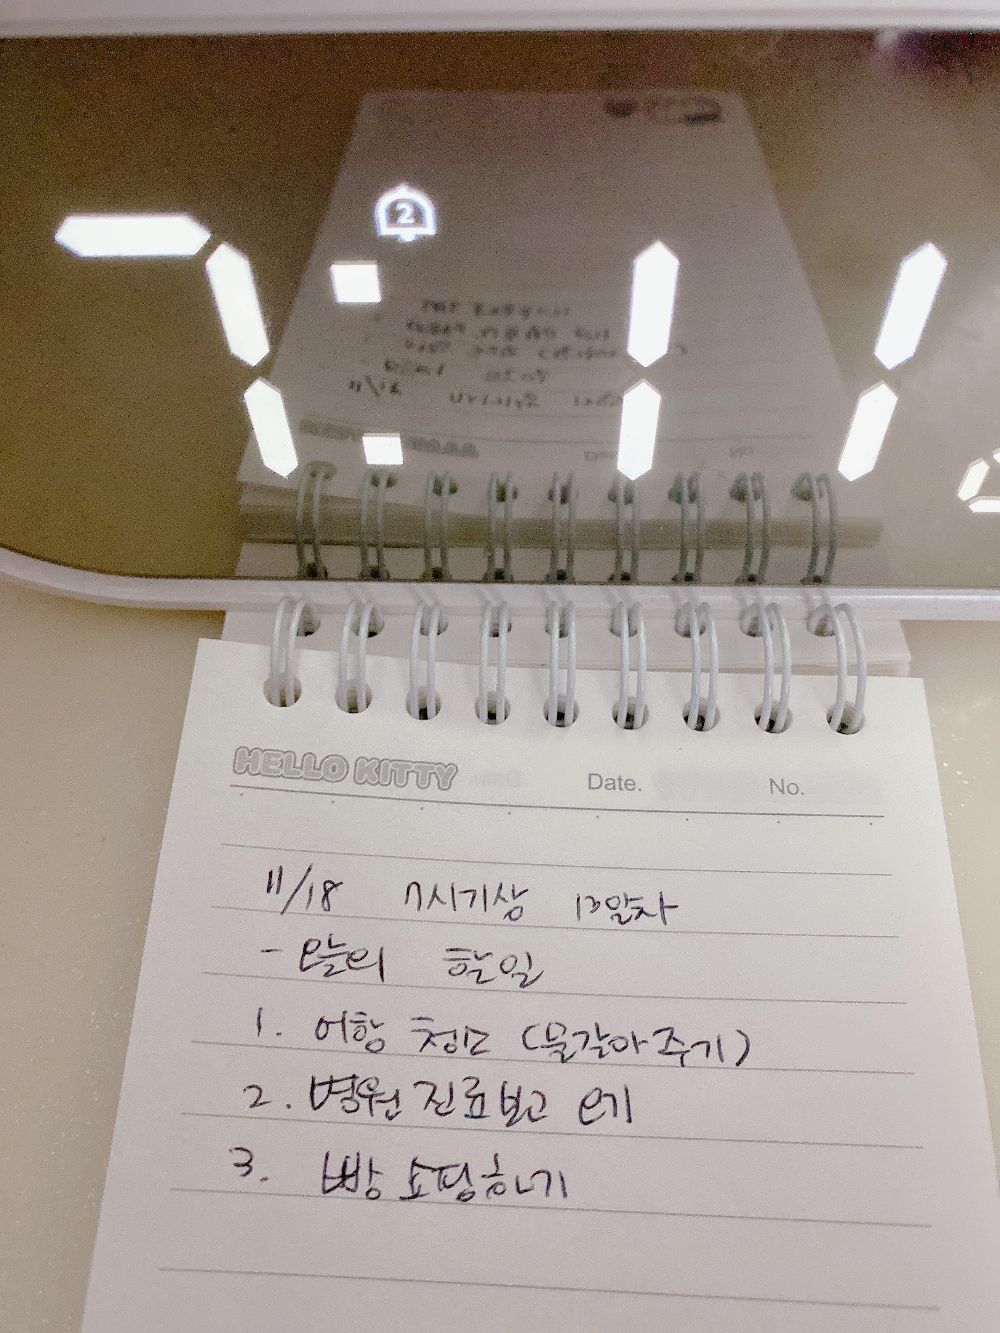 2
7:11
HELLO KITTY Date. No.
11/18 7시기상 13일차
- 오늘의 할일
1. 어항 청소 (물갈아주기)
2. 병원 진료보고 오기
3. 빵 쇼핑하기